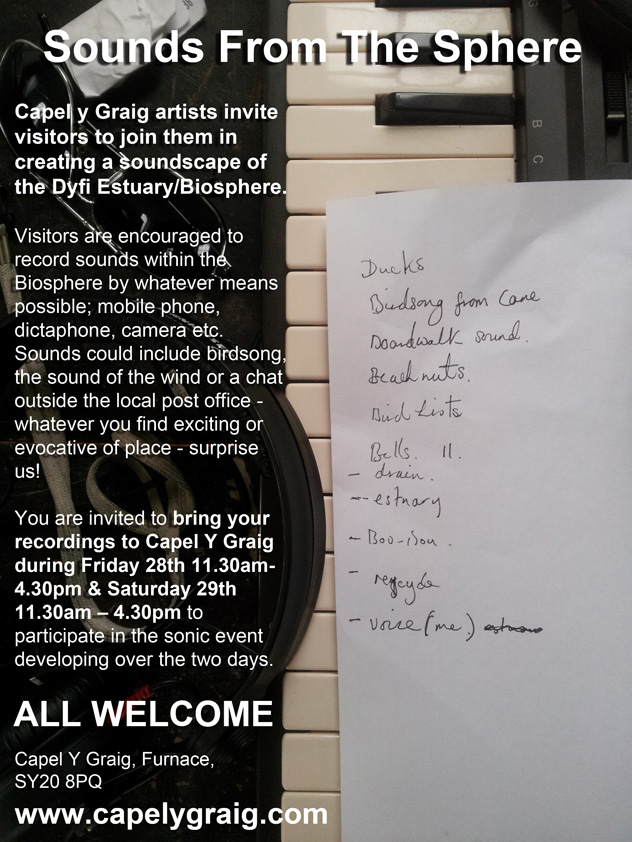 Sounds From The Sphere
Capel y Graig artists invite
visitors to join them in
creating a soundscape of
the Dyfi Estuary/Biosphere.
Visitors are encouraged to
record sounds within the
Biosphere by whatever means
possible; mobile phone,
dictaphone, camera etc.
Sounds could include birdsong,
the sound of the wind or a chat
outside the local post office -
whatever you find exciting or
evocative of place - surprise
us!
You are invited to bring your
recordings to Capel Y Graig
during Friday 28th 11.30am-
4.30pm & Saturday 29th
11.30am – 4.30pm to
participate in the sonic event
developing over the two days.
ALL WELCOME
Capel Y Graig, Furnace,
SY20 8PQ
www.capelygraig.com
B
C
Ducks
Birdsong from
Boardwalk sound.
Beach nuts.
Bird Lists
Bells. 11.
- drain.
- estuary
-
-
- voice (me.)